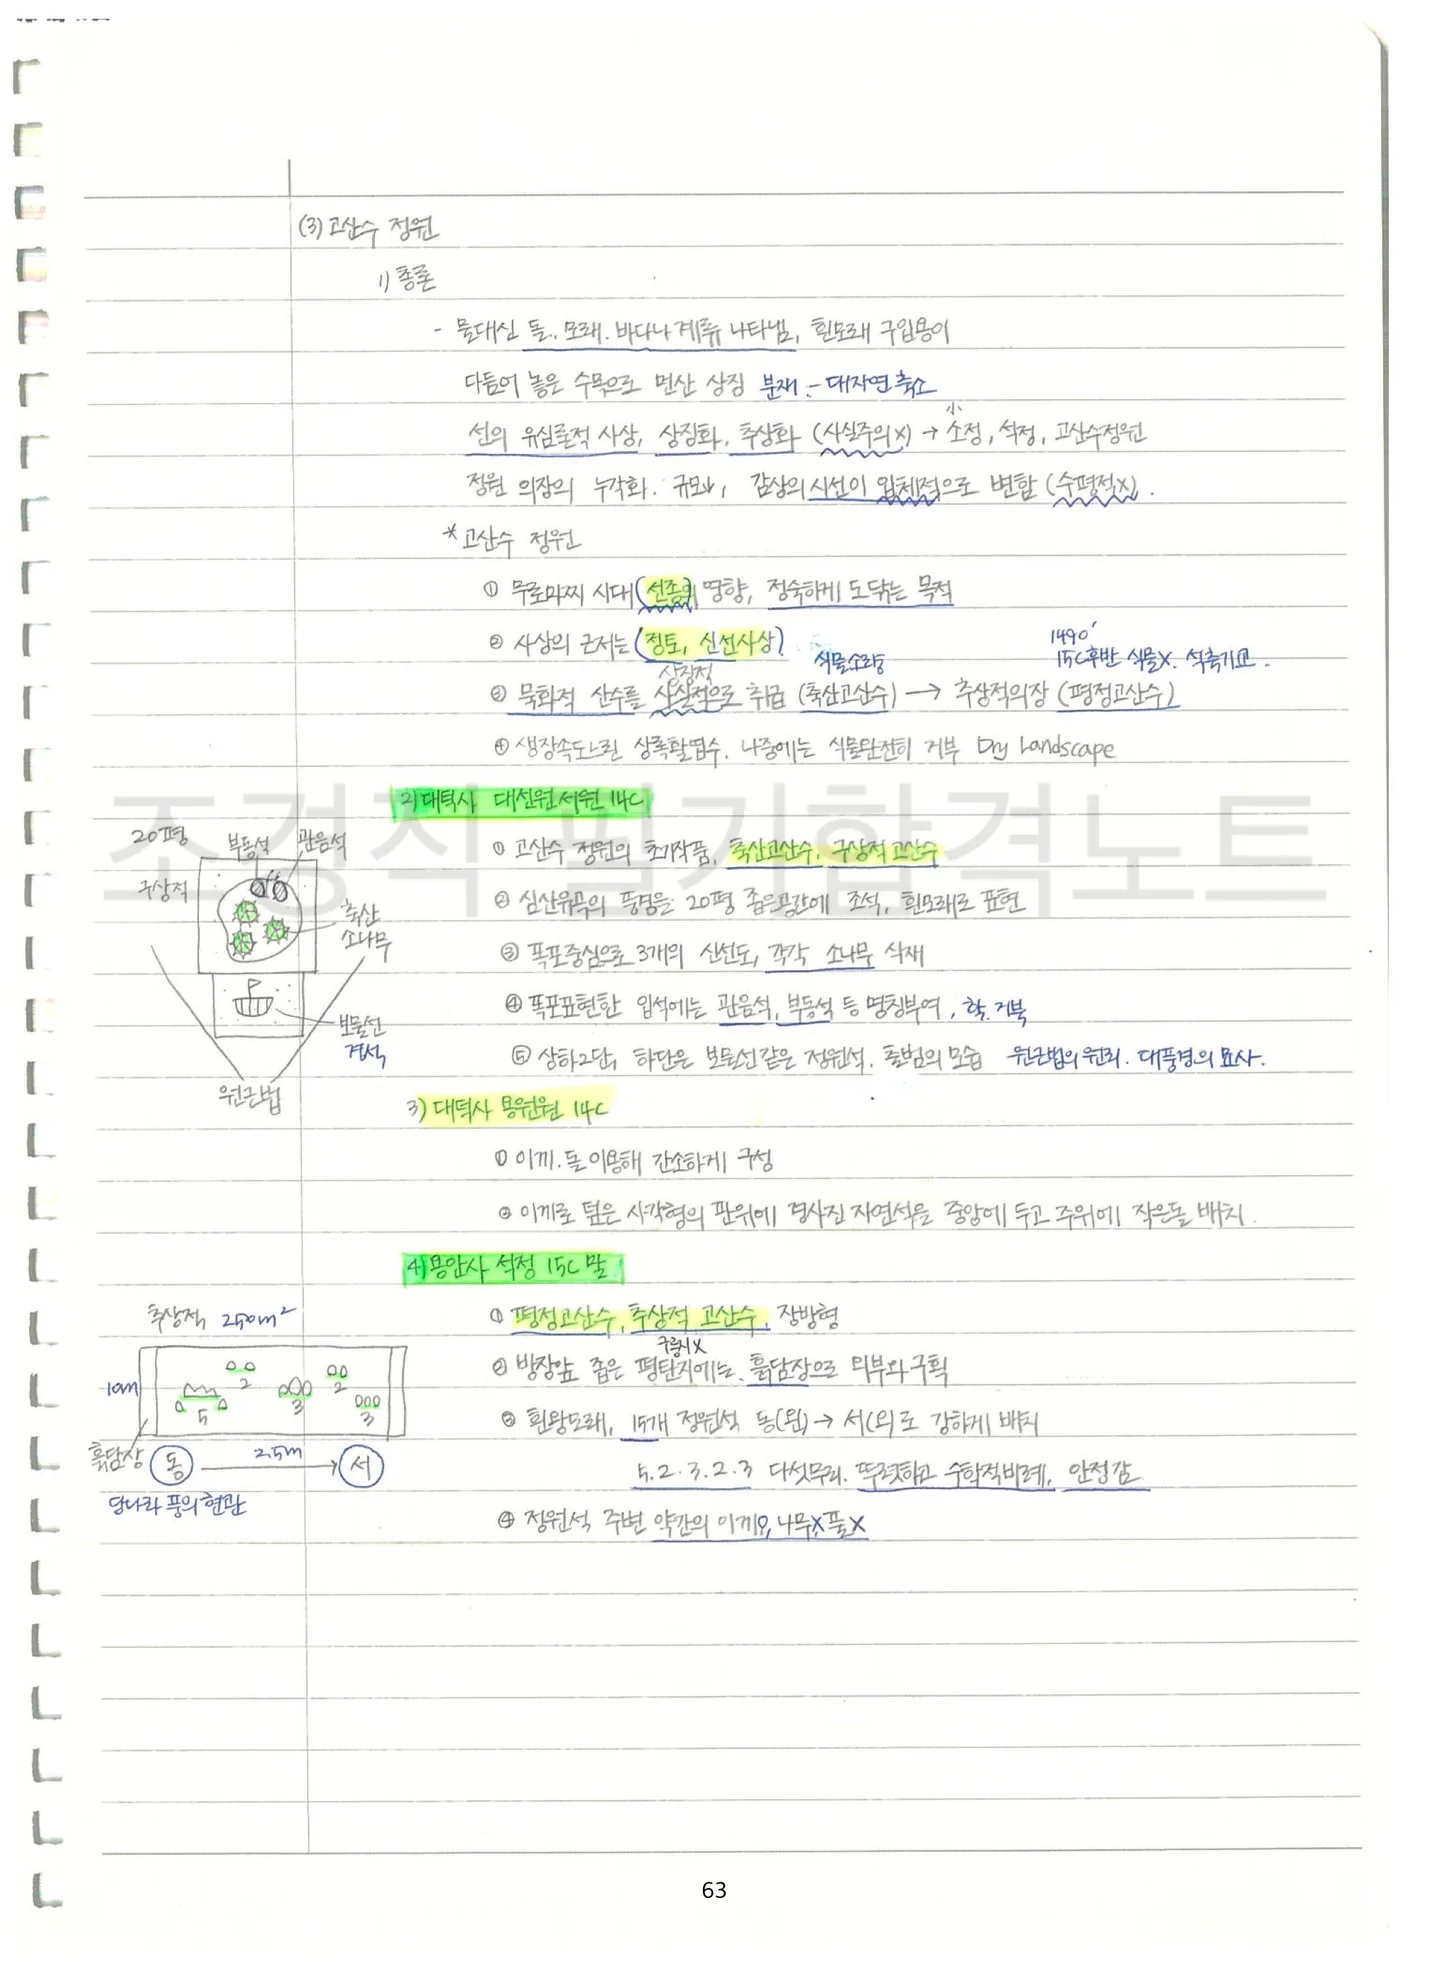 (3) 고산수 정원
1) 총론
- 물대신 돌. 모래. 바다나 계류 나타냄, 흰모래 구입용이
다듬어 놓은 수목으로 먼산 상징 분재 - 대자연 축소
小
선의 유심론적 사상, 상징화, 추상화 (사실주의X) → 소정, 석정, 고산수정원
정원 의장의 누각화. 규모나, 감상의 시선이 입체적으로 변함 (수평적X).
* 고산수 정원
① 무로마찌 시대 (선종의) 영향, 정숙하게 도닦는 목적
1490'
② 사상의 근저는 (정토, 신선사상) 식물소량 15C후반 식물X. 석축기교.
상징적
③ 묵화적 산수를 사실적으로 취급 (축산고산수) → 추상적의장 (평정고산수)
④ 생장속도느린 상록활엽수. 나중에는 식물완전히 거부 Dry Landscape
2) 대덕사 대선원서원 14C
① 고산수 정원의 초기작품, 축산고산수, 구상적고산수
② 심산유곡의 풍경을 20평 좁은공간에 조석, 흰모래로 표현
③ 폭포중심으로 3개의 신선도, 각각 소나무 식재
④ 폭포표현한 입석에는 관음석, 부동석 등 명칭부여, 학. 거북
⑤ 상하2단, 하단은 보물선같은 정원석. 출범의 모습 원근법의 원리. 대풍경의 묘사.
20평
부동석
관음석
구상적
축산
소나무
보물선
경석
원근법
3) 대덕사 용원원 14C
① 이끼. 돌 이용해 간소하게 구성
② 이끼로 덮은 사각형의 판위에 경사진 자연석을 중앙에 두고 주위에 작은돌 배치.
4) 용안사 석정 15C 말
① 평정고산수, 추상적 고산수, 장방형
구릉지X
② 방장앞 좁은 평탄지에는. 흙담장으로 외부와 구획
③ 흰왕모래, 15개 정원석 동(왼) → 서(오)로 강하게 배치
5. 2. 3. 2. 3 다섯무리. 뚜렷하고 수학적비례, 안정감
④ 정원석 주변 약간의 이끼O, 나무X 풀X
추상적 250m²
10m
5
2
3
2
3
흙담장
동
25m
서
당나라 풍의 현관
조경직 필기합격노트
63